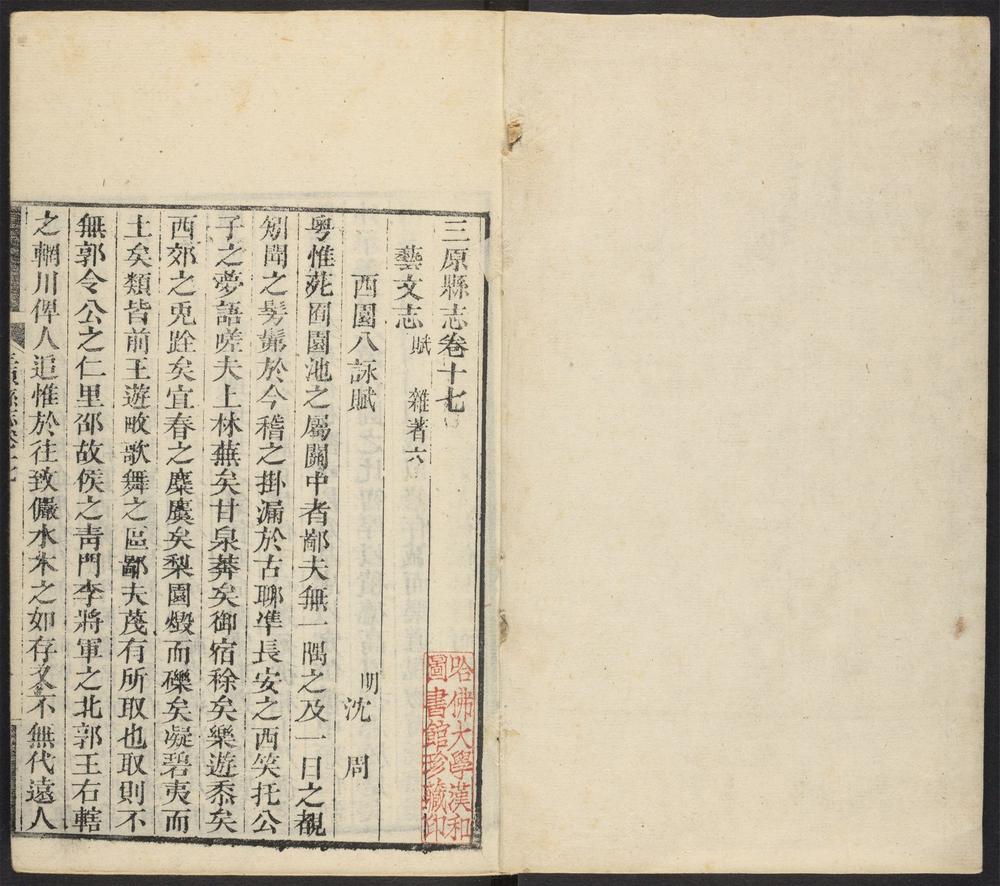 三原縣志卷十七
藝文志 賦 雜著六
西園八詠賦
明沈周
粤惟苑囿園池之屬關中者鄙夫無一隅之及一日之覩
矧聞之髣髴於今稽之掛漏於古聊準長安之西笑托公
子之夢語嗟夫上林蕪矣甘泉莽矣御宿稌矣樂遊黍矣
西郊之兎跧矣宜春之麋麌矣梨園燬而礫矣凝碧夷而
土矣類皆前王遊畋歌舞之區鄙夫蔑有所取也取則不
無郭令公之仁里邵故侯之靑門李將軍之北郭王右轄
之輞川俾人追惟於往致儼水木之如存 不無代遠人
三原縣志卷十七
哈佛大學漢和
圖書館珍藏印